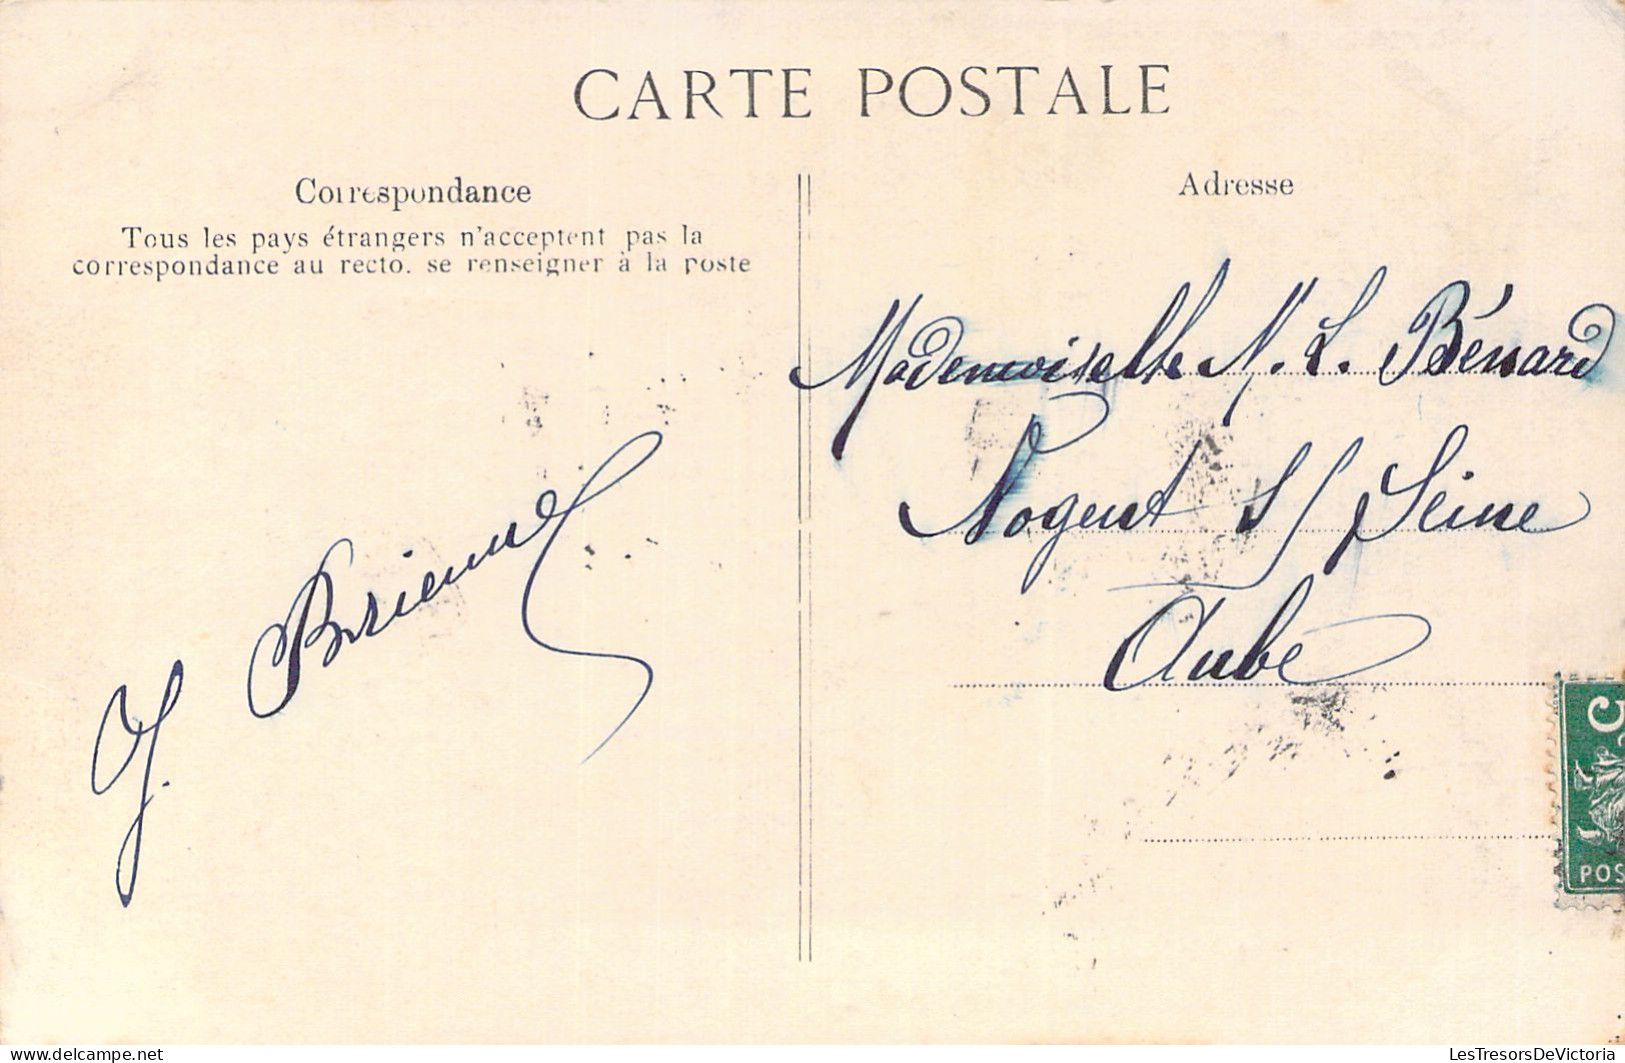 CARTE POSTALE
Correspondance
Tous les pays étrangers n'acceptent pas la
correspondance au recto. se renseigner à la poste
J. Brienne
Adresse
Mademoiselle M. L. Bénard
Nogent s/ Seine
Aube
5
POS
Delcampe.net
LesTresorsDeVictoria